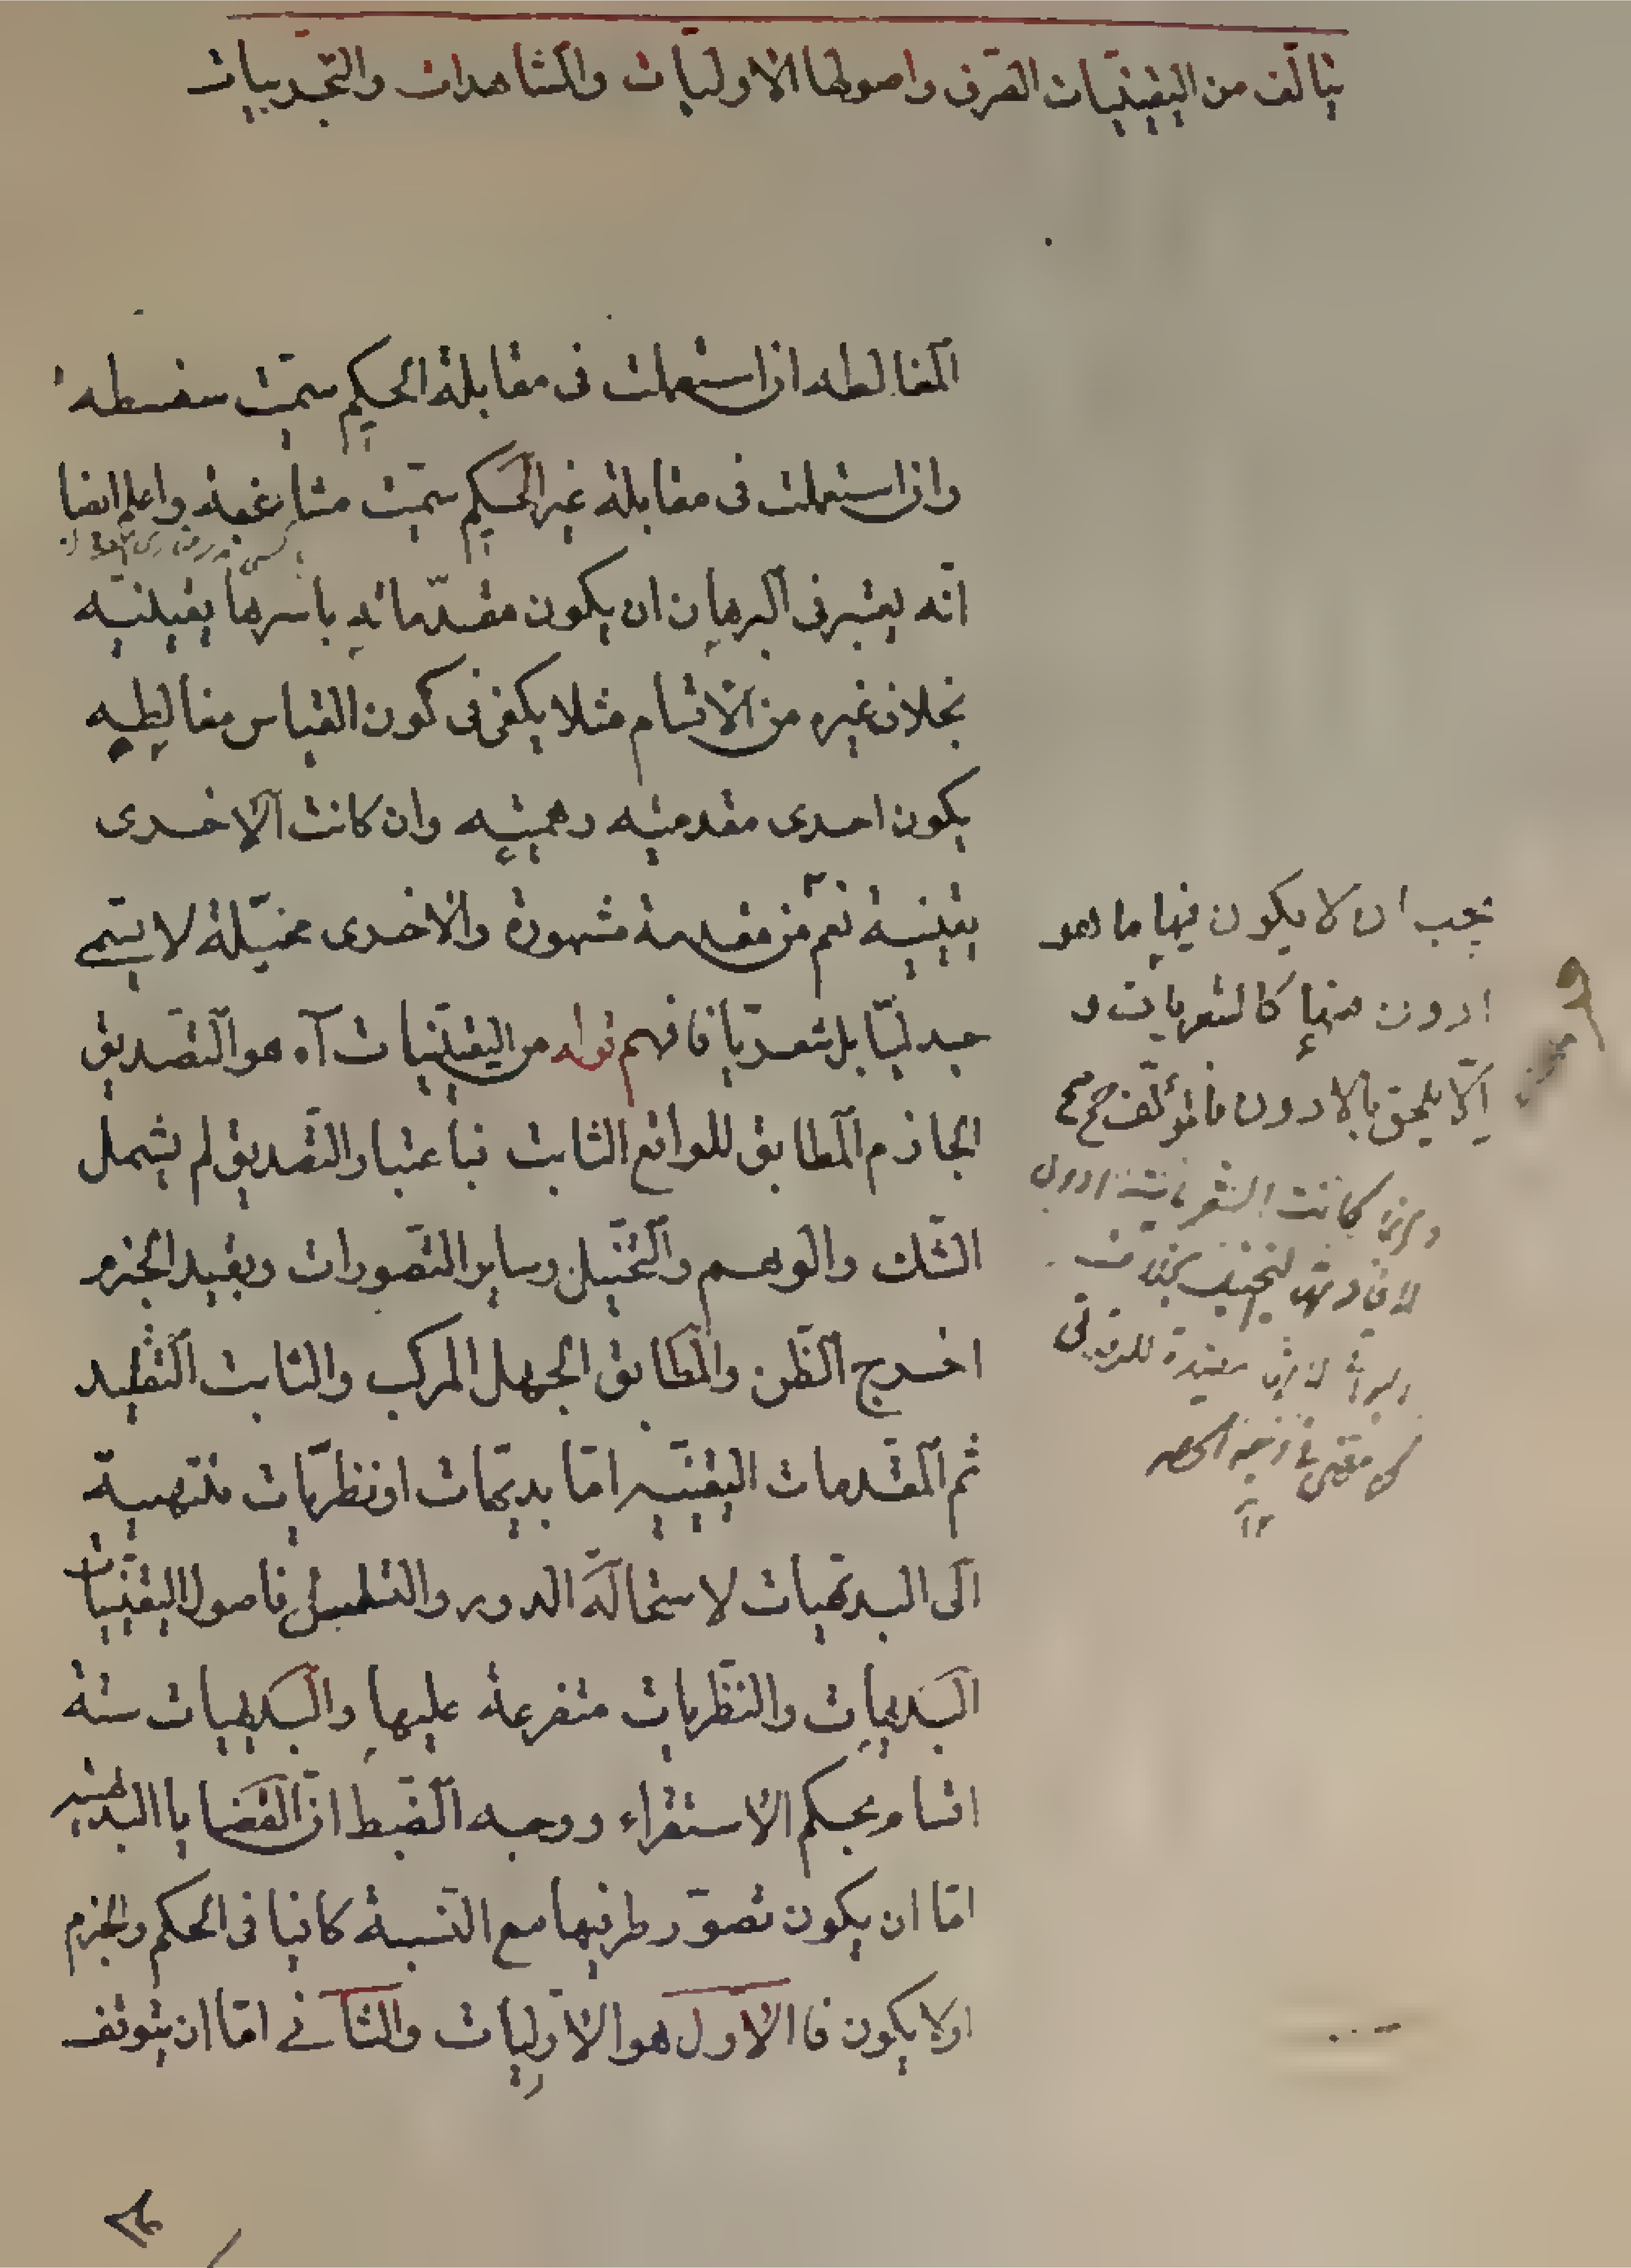 يتألف من اليقينيات الصرف واصولها الاوليات والمشاهدات والتجربيات
المغالطه ان استعملت فى مقابلة الحكيم سميت سفسطه
وان استعملت فى مقابلة غير الحكيم سميت مشاغبه واعلم ايضا
انه يعتبر فى البرهان ان يكون مقدماته باسرها يقينيه
بخلاف غيره من الاقسام مثلا يكفى فى كون القياس مغالطيه
يكون احدى مقدمتيه وهميته وان كانت الاخرى
يقينية نعم من مقدمة مشهورة والاخرى مخيلة لا يسمى
جدليا بل شعريا فافهم قوله من اليقينيات آه هو التصديق
الجازم المطابق للواقع الثابت فباعتبار التصديق لم يشمل
الشك والوهم والتخييل وساير التصورات وبقيد الجزم
اخرج الظن والمطابق الجهل المركب والثابت التقليد
ثم المقدمات اليقينيه اما بديهيات او نظريات منتهية
الى البديهيات لاستحالة الدور والتسلسل فاصول اليقينيات
البديهيات والنظريات متفرعة عليها والبديهيات ستة
اقسام بحكم الاستقراء ووجه الضبط ان القضايا البديهيه
اما ان يكون تصور طرفيها مع النسبة كافيا فى الحكم والجزم
اولا يكون فالاول هو الاوليات والثانے اما ان يتوقف
يجب ان لا يكون فيها ما هو
ادون منها كالشعريات و
الا يلحق بالادون فالمؤلف
كانت الشعريات ادون
بخلاف